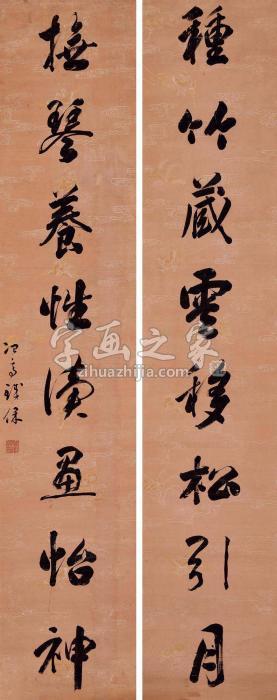 種竹藏雲移松引月
撫琴養性讀畫怡神
冶亭鐵保
字画之家
zihuazhijia.com